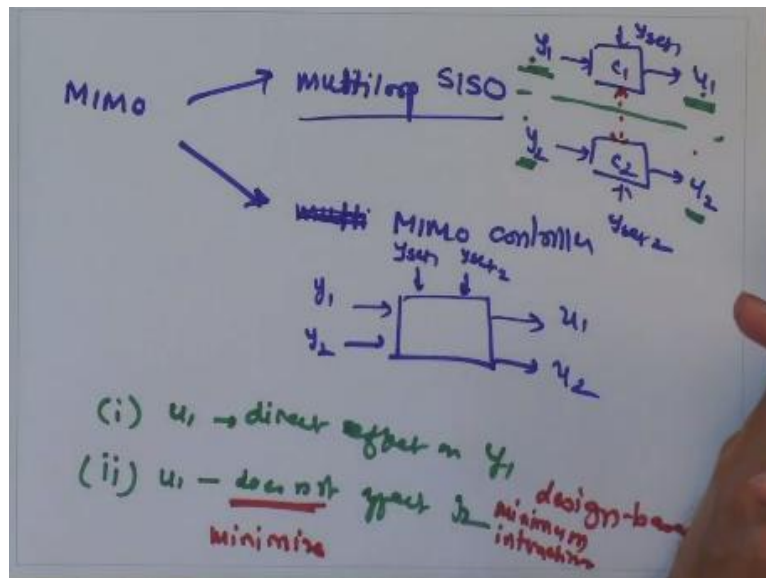 MIMO
multiloop SISO
y1
yset1
C1
u1
y2
C2
u2
yset2
MIMO controller
yset1 yset2
y1
u1
y2
u2
(i) u1 → direct effect on y1
(ii) u1 - does not affect y2
minimize
minimum
interaction